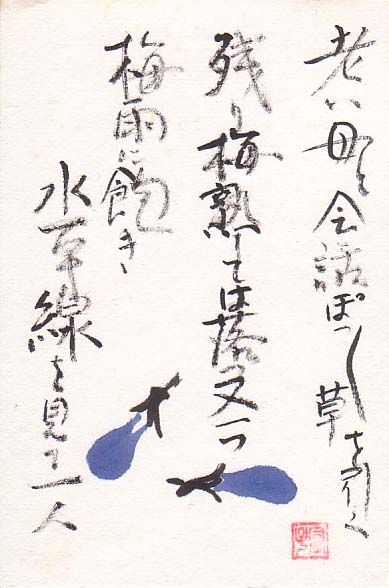 老い母と会話ぽつ〱草を引く
残り梅熟しては落又一つ
梅雨に飽き
水平線を見る一人